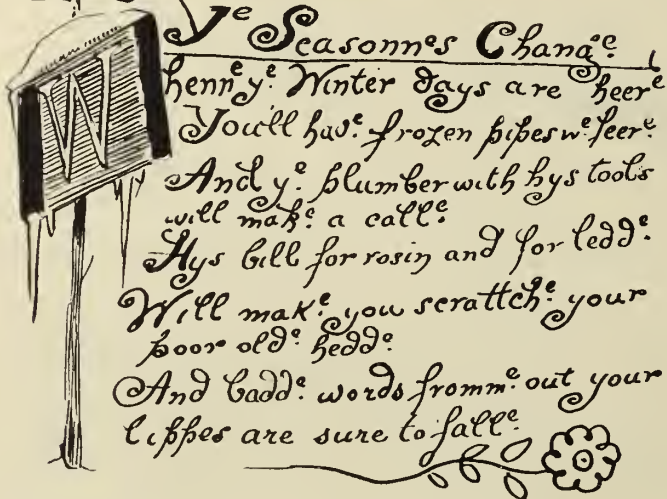 Ye Seasonnes Change
Whenn ye Winter days are heere
You'll have frozen pipes we feere
And ye plumber with hys tools
will make a calle
Hys bill for rosin and for ledde
Will make you scrattche your
poor olde hedde
And badde words fromme out your
lippes are sure to falle